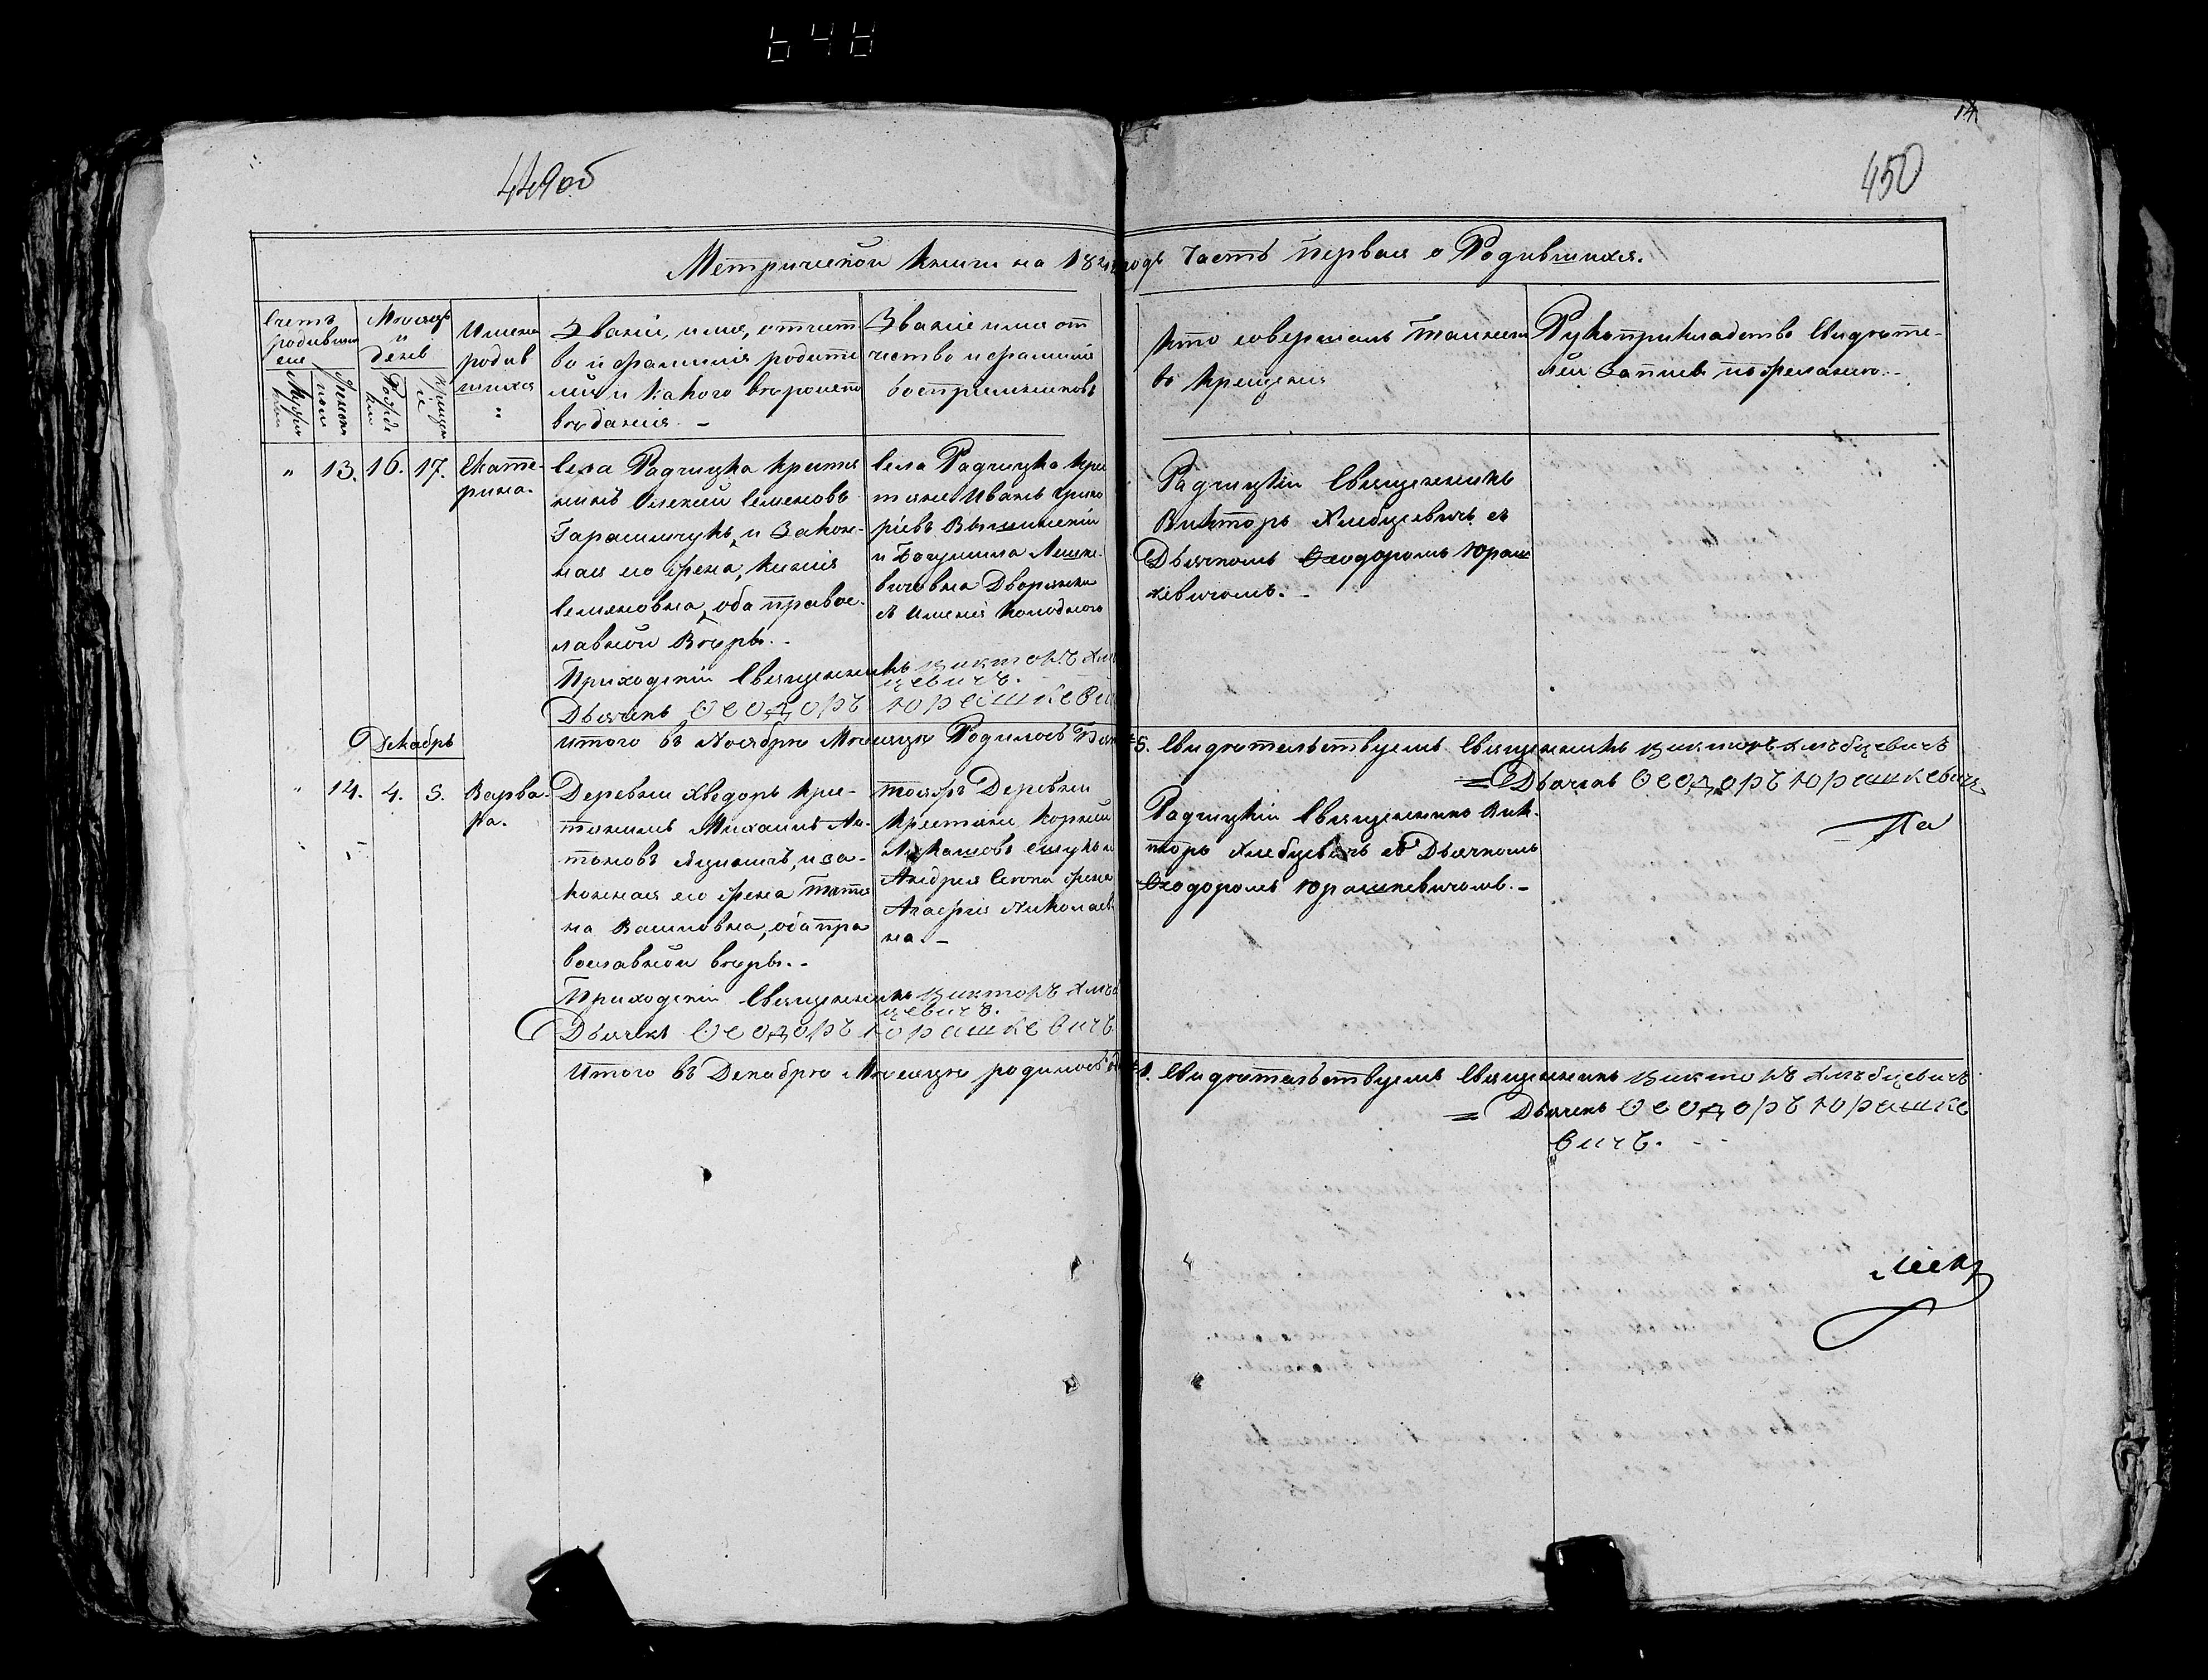 648
449об
450
14
Метрической Книги на 184 годъ Часть Первая о Родившихся.
Счетъ родившихся
Мужеска
Женска пола
Месяцъ и день
Рождения
Крещения
Имена
родив
шихся
"
Званіе, имя, отчест
во и фамилія родите
лей и какого вероиспо
веданія. -
Званіе имя от
чество и фамилія
воспріемниковъ
Кто совершалъ таинст
во крещенія
Рукоприкладство Свидете-
лей записи по желанію. -
" 13. 16. 17. Екате-
рина.
Села Радчицка крестья
нинъ Алексей Семеновъ
Гарашчукъ, и закон-
ная его жена, Ксенія
Семеновна, оба правос-
лавной Веры. -
Приходскій Священникъ Викторъ Хле
цевичъ.
Дьячекъ Ѳеодоръ Юрашкевич
Села Радчицка кре
стьяне Иванъ Григо
ріевъ
и Богумила
вичовна Дворянка
съ имения Колодного
Радчицкій Священникъ
Викторъ Хлебцевичъ съ
Дьячкомъ Ѳеодоромъ Юраш
кевичомъ. -
Итого въ Ноябре Месяце Родилось 5. Свидетельствуемъ Священникъ Викторъ Хлѣбцевичъ
= Дьячекъ Ѳеодоръ Юрашкевичъ
Декабрь
" 14. 4. 5. Варва-
ра.
Деревни Хведоръ кре-
стьянинъ Михаилъ Ан-
тоновъ и за-
конная его жена Татья
на оба пра
вославной веры. -
Приходскій Священникъ Викторъ Хлѣб
цевичъ.
Дьячекъ Ѳеодоръ Юрашкевичъ
тояжъ Деревни
Крестьяне Корней
Лукашовъ
Андрея жена
Агафія Николаев
на. -
Радчицкій Священникъ Вик-
торъ Хлебцевичъ съ Дьячкомъ
Ѳеодоромъ Юрашкевичомъ. -
Па
Итого въ Декабре Месяце родилось 1. Свидетельствуемъ Священникъ Викторъ Хлѣбцевичъ
= Дьячекъ Ѳеодоръ Юрашке
вичъ.